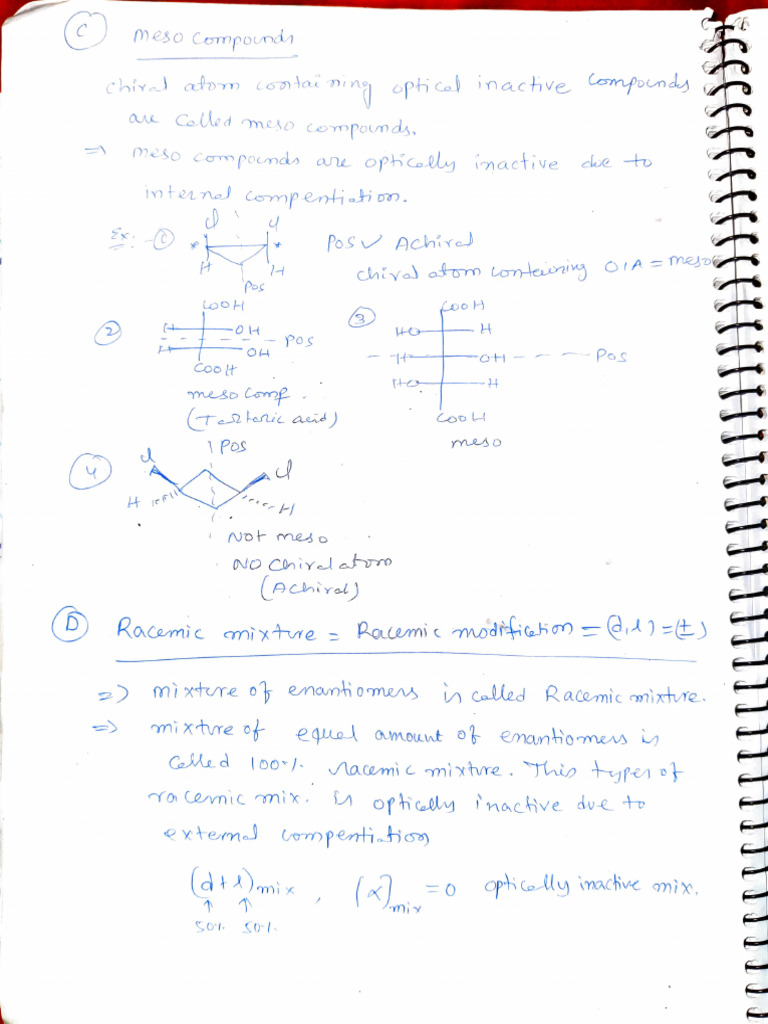 C meso compounds
chiral atom containing optical inactive compounds
are called meso compounds.
⇒ meso compounds are optically inactive due to
internal compentiation.
Ex: - ① Cl Cl
* * POS ✓ Achiral
H H
chiral atom containing OIA = meso
POS
② COOH
H OH
POS
H OH
COOH
meso comp.
(Tartaric acid)
③ COOH
HO H
H OH POS
HO H
COOH
meso
④ POS
Cl Cl
H H
Not meso
No chiral atom
(Achiral)
D Racemic mixture = Racemic modification = (d,l) = (±)
⇒ mixture of enantiomers is called Racemic mixture.
⇒ mixture of equal amount of enantiomers is
called 100% racemic mixture. This types of
racemic mix. is optically inactive due to
external compentiation
(d+l)mix , [α]mix = 0 optically inactive mix.
↑ ↑
50% 50%